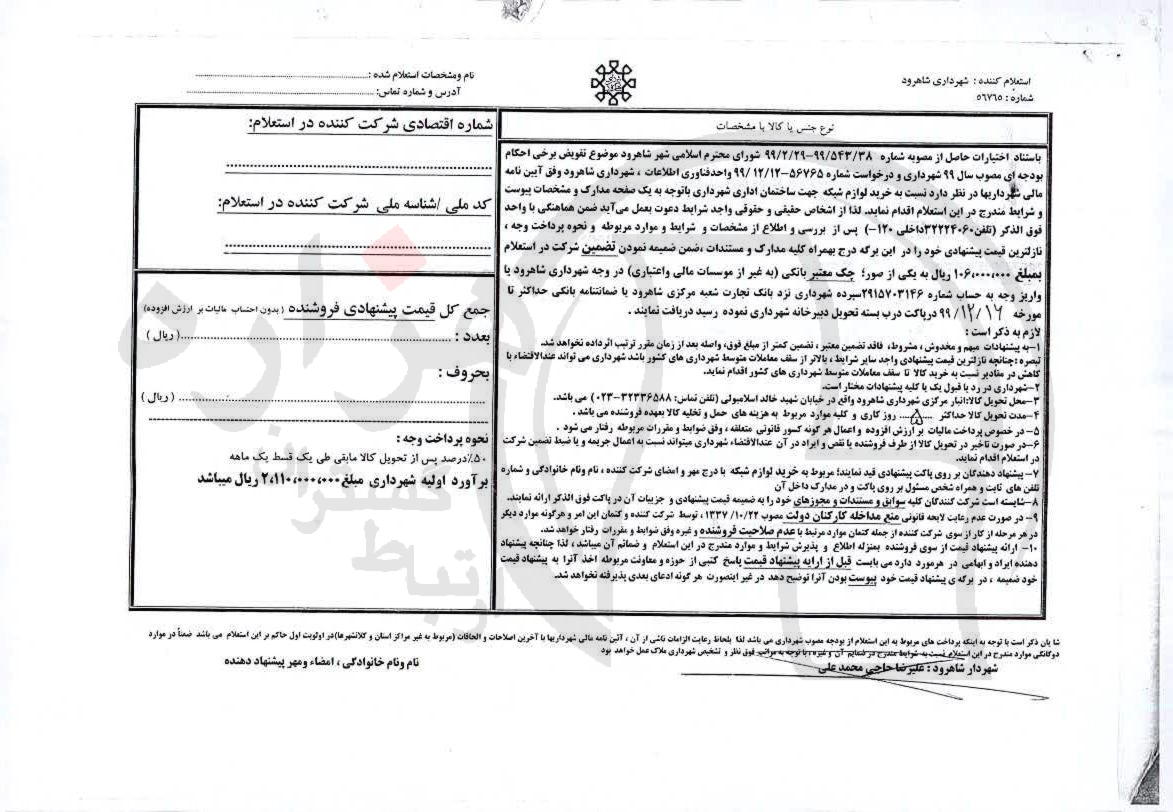 استعلام کننده : شهرداری شاهرود
شماره : ۵۶۷۶۵
نام ومشخصات استعلام شده :
آدرس و شماره تماس:
نوع جنس یا کالا با مشخصات
باستناد اختیارات حاصل از مصوبه شماره ۹۹/۵۴۳/۳۸–۹۹/۲/۲۹ شورای محترم اسلامی شهر شاهرود موضوع تفویض برخی احکام
بودجه ای مصوب سال ۹۹ شهرداری و درخواست شماره ۵۶۷۶۵–۹۹/۱۲/۱۲ واحدفناوری اطلاعات ، شهرداری شاهرود وفق آیین نامه
مالی شهرداریها در نظر دارد نسبت به خرید لوازم شبکه جهت ساختمان اداری شهرداری باتوجه به یک صفحه مدارک و مشخصات پیوست
و شرایط مندرج در این استعلام اقدام نماید. لذا از اشخاص حقیقی و حقوقی واجد شرایط دعوت بعمل می آید ضمن هماهنگی با واحد
فوق الذکر (تلفن۳۲۲۲۴۰۶۰داخلی ۱۲۰–) پس از بررسی و اطلاع از مشخصات و شرایط و موارد مربوطه و نحوه پرداخت وجه ،
نازلترین قیمت پیشنهادی خود را در این برگه درج بهمراه کلیه مدارک و مستندات ،ضمن ضمیمه نمودن تضمین شرکت در استعلام
بمبلغ ۱۰۶,۰۰۰,۰۰۰ ریال به یکی از صور؛ چک معتبر بانکی (به غیر از موسسات مالی واعتباری) در وجه شهرداری شاهرود یا
واریز وجه به حساب شماره ۲۹۱۵۷۰۳۱۴۶سپرده شهرداری نزد بانک تجارت شعبه مرکزی شاهرود یا ضمانتنامه بانکی حداکثر تا
مورخه ۹۹/۱۲/۱۶ درپاکت درب بسته تحویل دبیرخانه شهرداری نموده رسید دریافت نمایند .
لازم به ذکر است :
۱–به پیشنهادات مبهم و مخدوش ، مشروط، فاقد تضمین معتبر ، تضمین کمتر از مبلغ فوق، واصله بعد از زمان مقرر ترتیب اثرداده نخواهد شد.
تبصره :چنانچه نازلترین قیمت پیشنهادی واجد سایر شرایط ، بالاتر از سقف معاملات متوسط شهرداری های کشور باشد شهرداری می تواند عندالاقتضاء با
کاهش در مقادیر نسبت به خرید کالا تا سقف معاملات متوسط شهرداری های کشور اقدام نماید.
۲–شهرداری در رد یا قبول یک یا کلیه پیشنهادات مختار است.
۳–محل تحویل کالا:انبار مرکزی شهرداری شاهرود واقع در خیابان شهید خالد اسلامبولی (تلفن تماس: ۳۲۳۳۶۵۸۸–۰۲۳) می باشد.
۴–مدت تحویل کالا حداکثر ....۵.... روز کاری و کلیه موارد مربوط به هزینه های حمل و تخلیه کالا بعهده فروشنده می باشد .
۵–در خصوص پرداخت مالیات بر ارزش افزوده و اعمال هر گونه کسور قانونی متعلقه ، وفق ضوابط و مقررات مربوطه رفتار می شود .
۶–در صورت تاخیر در تحویل کالا از طرف فروشنده یا نقص و ایراد در آن عندالاقتضاء شهرداری میتواند نسبت به اعمال جریمه و یا ضبط تضمین شرکت
در استعلام اقدام نماید.
۷–پیشنهاد دهندگان بر روی پاکت پیشنهادی قید نمایند؛ مربوط به خرید لوازم شبکه با درج مهر و امضای شرکت کننده ، نام ونام خانوادگی و شماره
تلفن های ثابت و همراه شخص مسئول بر روی پاکت و در مدارک داخل آن
۸–شایسته است شرکت کنندگان کلیه سوابق و مستندات و مجوزهای خود را به ضمیمه قیمت پیشنهادی و جزییات آن در پاکت فوق الذکر ارائه نمایند.
۹– در صورت عدم رعایت لایحه قانونی منع مداخله کارکنان دولت مصوب ۱۳۳۷/۱۰/۲۲ ، توسط شرکت کننده و کتمان این امر و هرگونه موارد دیگر
در هر مرحله از کار از سوی شرکت کننده از جمله کتمان موارد مرتبط با عدم صلاحیت فروشنده و غیره وفق ضوابط و مقررات رفتار خواهد شد.
۱۰– ارائه پیشنهاد قیمت از سوی فروشنده بمنزله اطلاع و پذیرش شرایط و موارد مندرج در این استعلام و ضمائم آن میباشد ، لذا چنانچه پیشنهاد
دهنده ایراد و ابهامی در هرمورد دارد می بایست قبل از ارایه پیشنهاد قیمت پاسخ کتبی از حوزه و معاونت مربوطه اخذ آنرا به پیشنهاد قیمت
خود ضمیمه ، در برگه ی پیشنهاد قیمت خود پیوست بودن آنرا توضیح دهد در غیر اینصورت هر گونه ادعای بعدی پذیرفته نخواهد شد.
شماره اقتصادی شرکت کننده در استعلام:
کد ملی /شناسه ملی شرکت کننده در استعلام:
جمع کل قیمت پیشنهادی فروشنده (بدون احتساب مالیات بر ارزش افزوده)
بعدد : (ریال )
بحروف :
( ریال )
نحوه پرداخت وجه :
۵۰٪درصد پس از تحویل کالا مابقی طی یک قسط یک ماهه
برآورد اولیه شهرداری مبلغ۲،۱۱۰،۰۰۰،۰۰۰ ریال میباشد
شا یان ذکر است با توجه به اینکه پرداخت های مربوط به این استعلام از بودجه مصوب شهرداری می باشد لذا بلحاظ رعایت الزامات ناشی از آن ، آئین نامه مالی شهرداریها با آخرین اصلاحات و الحاقات (مربوط به غیر مراکز استان و کلانشهرها)در اولویت اول حاکم بر این استعلام می باشد ضمناً در موارد
دوگانگی موارد مندرج در این استعلام نسبت به شرایط مندرج در ضمایم آن و غیره ، با توجه به مراتب فوق نظر و تشخیص شهرداری ملاک عمل خواهد بود
شهردار شاهرود : علیرضا حاجی محمد علی
نام ونام خانوادگی ، امضاء ومهر پیشنهاد دهنده
هزاره
گستران
ارتباط